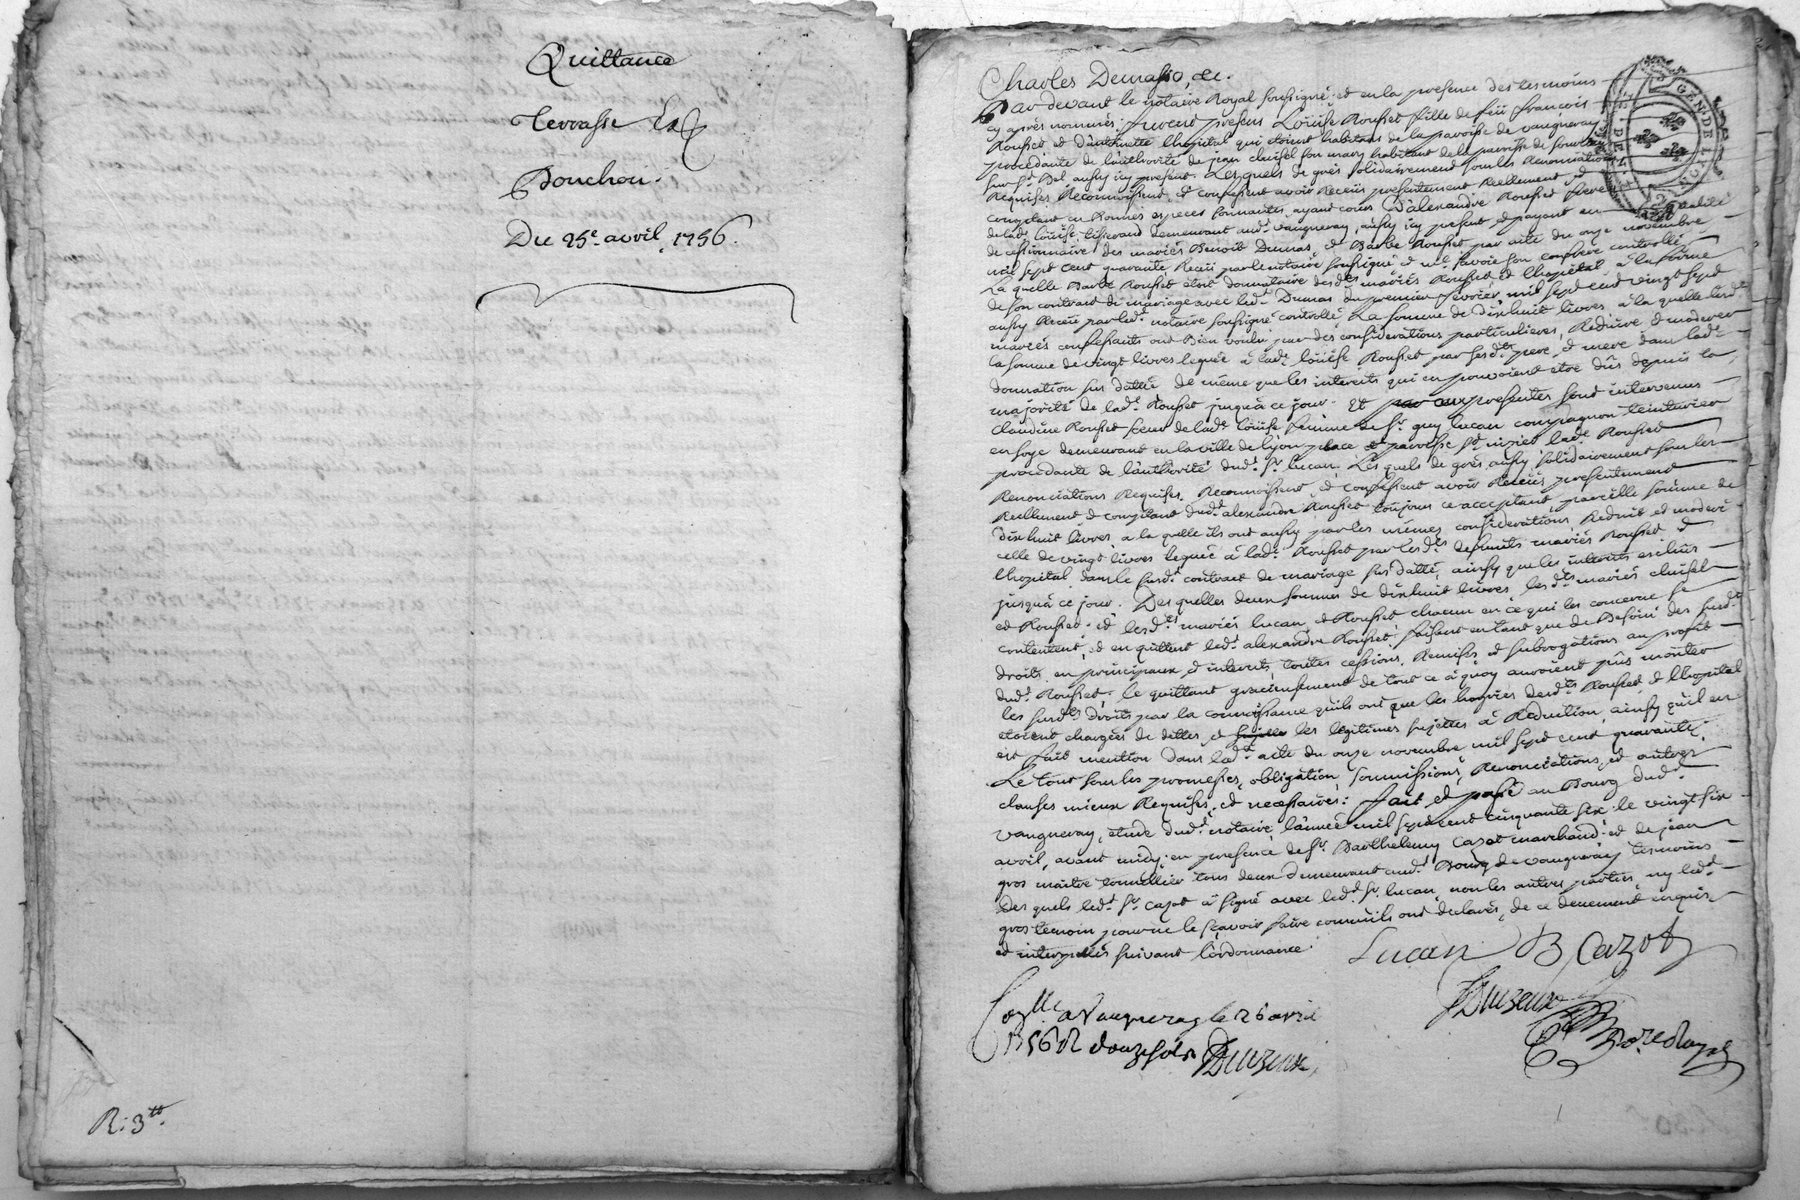 Quittance
Terrasse
Bouchon.
Du 25e. avril 1756.
R: 3tt.
Charles Demasso, &c.
Par devant le notaire Royal soussigné et en la presence des tesmoins
cy après nommés: furent presens Loüise Rousset fille de feü françois
Rousset et d'antoinette lhopital qui étoient habitans de la paroisse de vaugneray
procedante de l'authorité de jean clusel son mary habitant de la paroisse de
sur Bel aussy icy present. Lesquels de grés solidairement sous les Renonciations
Requises Reconnoissent, et confessent avoir Receüs presentement Reellement et
comptant en Bonnes especes sonnantes ayant cours d'alexandre Rousset frere
de lade. loüise demeurant audt. vaugneray, aussy icy present et payant en qualité
de cessionnaire des mariés Benoit Dumas, et Barbe Rousset par acte du onze novembre
mil sept cent quarante Receü par le notaire soussigné et confrere controllé
La quelle Barbe Rousset étoit donnataire desdts. mariés Rousset et lhopital à la forme
de son contract de mariage avec ledt. Dumas du premier fevrier mil sept cent vingt sept
aussy Receü par ledt. notaire soussigné controllé La somme de dixhuit livres à la quelle lesdts.
mariés confessants ont Bien voulu par des considerations particulieres, Reduire, & moderer
la somme de vingt livres leguée à lade. loüise Rousset par sesdts. pere, et mere dans lade.
donnation sus dattée de même que les interets qui en pouvoient etre dûs depuis la
majorité de lade. Rousset jusqu'à ce jour. Et aux presentes sont intervenus
Claudine Rousset sœur de lade. loüise femme de Sr. guy lucan compagnon teinturier
en soye demeurant en la ville de lyon place et paroisse St. nizier lade. Rousset
procedante de l'authorité dudt. Sr. lucan. Les quels de grés aussy solidairement sous les
Renonciations Requises, Reconnoissent, et confessent avoir Receüs presentement
Reellement & comptant dudt. alexandre Rousset toujours ce acceptant pareille somme de
dixhuit livres, a la quelle ils ont aussy par les mêmes considerations Reduit et moderé
celle de vingt livres leguée à lade. Rousset par lesdts. deffunts mariés Rousset &
lhopital dans le susdt. contract de mariage sus datté, ainsy que les interets exclus
jusqu'à ce jour. Des quelles deux sommes de dixhuit livres, lesdts. mariés clusel
et Rousset, et lesdts. mariés lucan, & Rousset chacun en ce qui les concerne se
contentent, & en quittent ledt. alexandre Rousset, faisant en tant que de Besoin des susdts.
droits en principaux, & interets, toutes cessions, Remises, et subrogations au profit
dudt. Rousset. le quittant gracieusement de tout ce à quoy auroient pûs monter
les susdts. droits par la connoissance qu'ils ont que les hoyries desdts. Rousset, & lhopital
étoient chargées de dettes, et les légitimes sujettes à Reduction, ainsy qu'il en
est fait mention dans ledt. acte du onze novembre mil sept cent quarante.
Le tout sous les promesses, obligation, soumissions, Renonciations, et autres
clauses mieux Requises, et necessaires: fait, et passé au Bourg dudt.
vaugneray, étude dudt. notaire, l'année mil sept cent cinquante six le vingt six
avril, avant midy: en presence de Sr. Barthelemy Cazot marchand: et de jean
gros maitre tonnellier tous deux demeurant audt. Bourg de vaugneray tesmoins
Des quels ledt. Sr. Cazot à signé avec ledt. Sr. lucan, non les autres parties, ny ledt.
gros temoin pour ne le sçavoir faire comm'ils ont declarés, de ce deuement enquis,
et interpellés suivant l'ordonnance.
Lucan B Cazot
Coll. a Vaugneray le 26 avril
1756 R douze sols